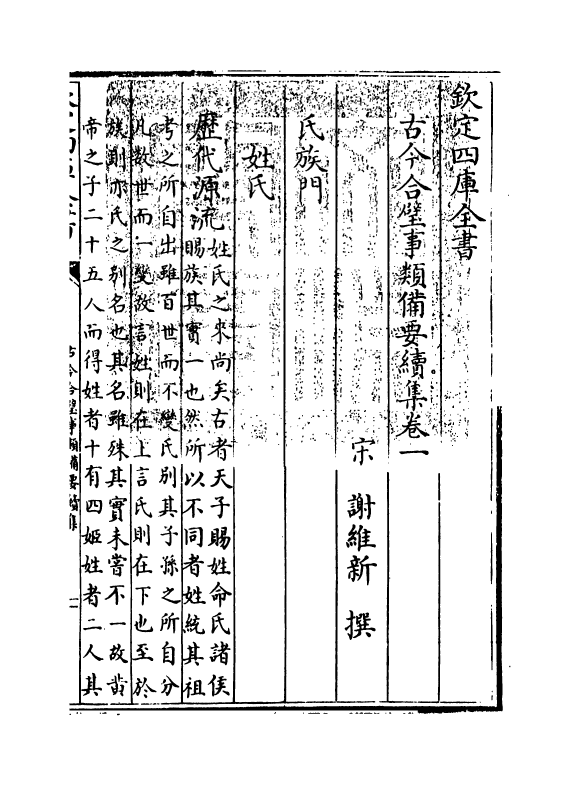 欽定四庫全書
古今合璧事類備要續集卷一
宋 謝維新 撰
氏族門
姓氏
歷代源流
姓氏之来尚矣古者天子賜姓命氏諸侯
賜族其實一也然所以不同者姓統其祖
考之所自出雖百世而不變氏別其子孫之所自分
凡數世而一變故言姓則在上言氏則在下也至於
族則亦氏之别名也其名雖殊其實未嘗不一故黄
帝之子二十五人而得姓者十有四姬姓者二人其
古今合璧事類備要續集
一